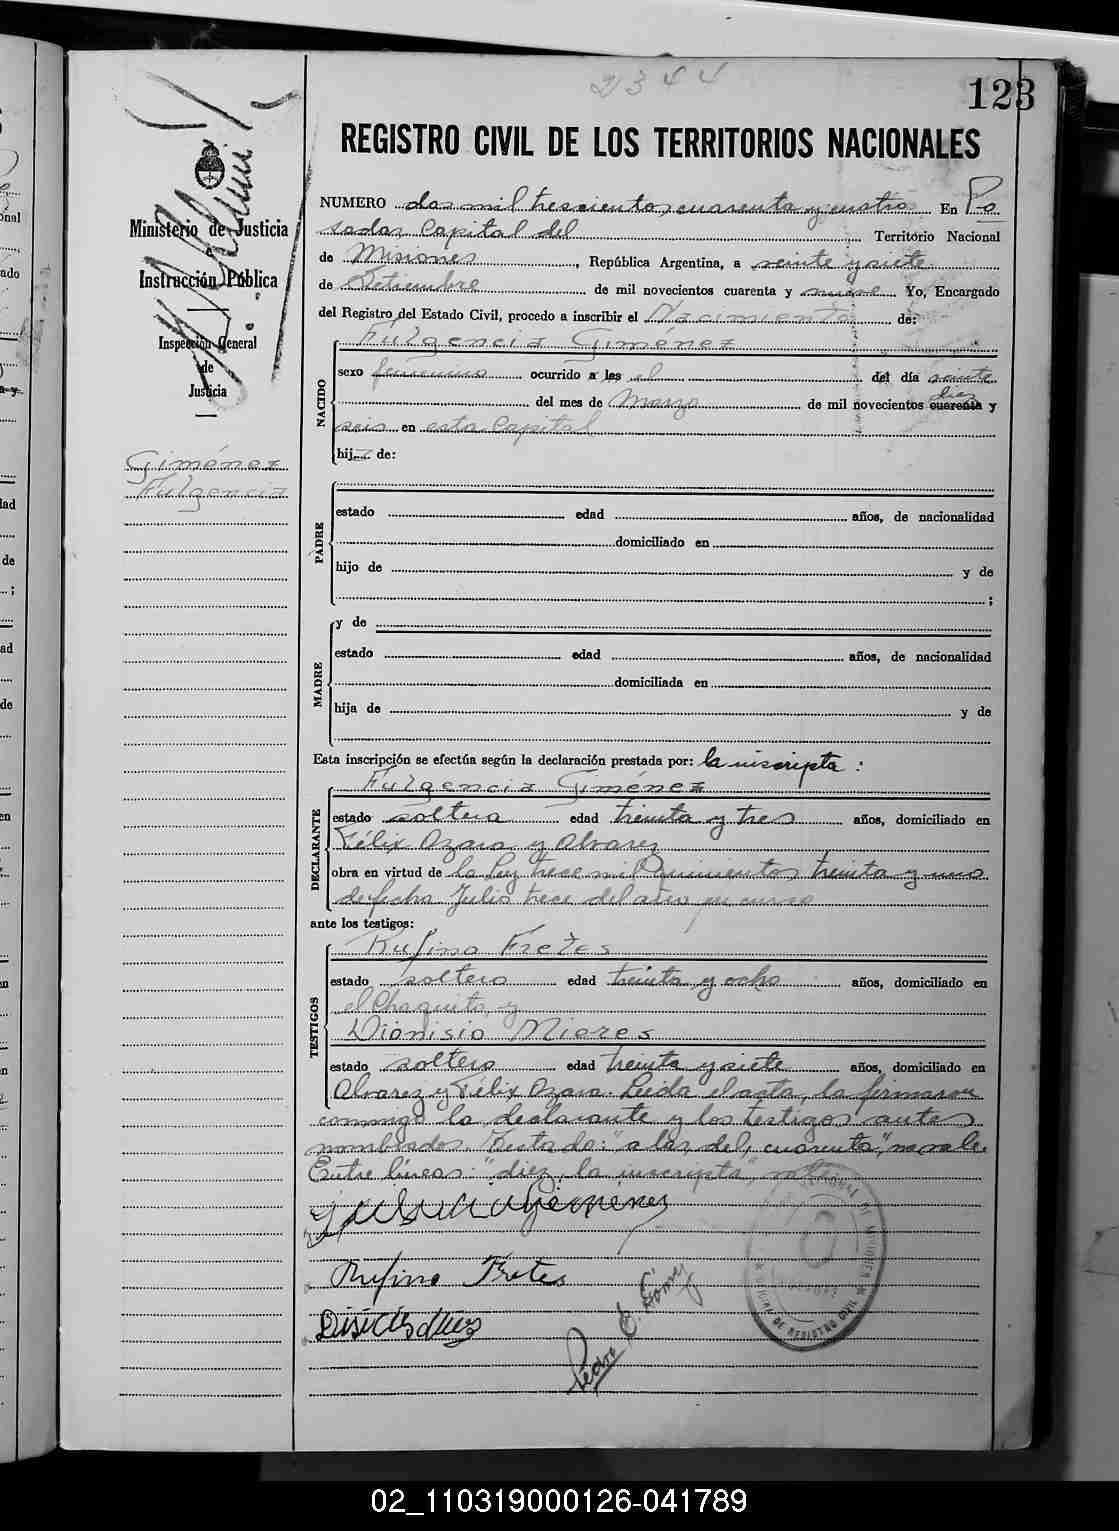 2344
123
REGISTRO CIVIL DE LOS TERRITORIOS NACIONALES
Ministerio de Justicia
e
Instrucción Pública
Inspección General
de
Justicia
Giménez
Fulgencia
NUMERO dos mil trescientos cuarenta y cuatro En Po
sadas Capital del Territorio Nacional
de Misiones, República Argentina, a veinte y siete
de Setiembre de mil novecientos cuarenta y nueve Yo, Encargado
del Registro del Estado Civil, procedo a inscribir el Nacimiento de:
NACIDO
Fulgencia Giménez
sexo femenino ocurrido a las el del día veinte
diez
del mes de Marzo de mil novecientos cuarenta y
seis en esta Capital
hija de:
PADRE
estado edad años, de nacionalidad
domiciliado en
hijo de y de
;
MADRE
y de
estado edad años, de nacionalidad
domiciliada en
hija de y de
Esta inscripción se efectúa según la declaración prestada por: la inscripta:
DECLARANTE
Fulgencia Giménez
estado soltera edad treinta y tres años, domiciliado en
Félix Azara y Alvarez
obra en virtud de la Ley trece mil quinientos treinta y uno
de fecha Julio trece del año en curso
ante los testigos:
TESTIGOS
Rufino Fretes
estado soltero edad treinta y ocho años, domiciliado en
el Chaquito, y
Dionisio Mieres
estado soltero edad treinta y siete años, domiciliado en
Alvarez y Félix Azara. Leida el acta, la firmaron
conmigo la declarante y los testigos antes
nombrados. Testado: "a las, del, cuarenta", no vale.
Entre líneas: "diez, la inscripta", vale.
Giménez
Rufino Fretes
Pedro E. Gómez
DE REGISTRO CIVIL
02_110319000126-041789